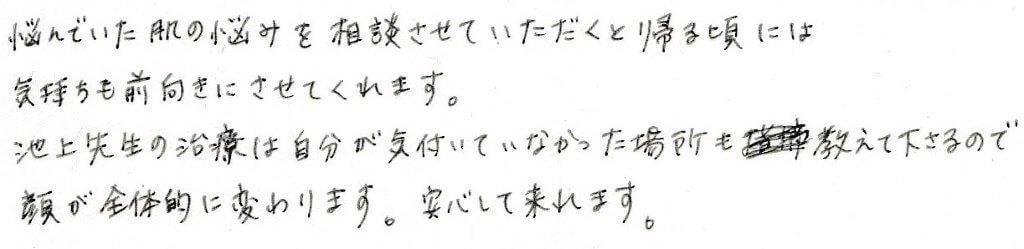 悩んでいた肌の悩みを相談させていただくと帰る頃には
気持ちも前向きにさせてくれます。
池上先生の治療は自分が気付いていなかった場所も教えて下さるので
顔が全体的に変わります。安心して来れます。